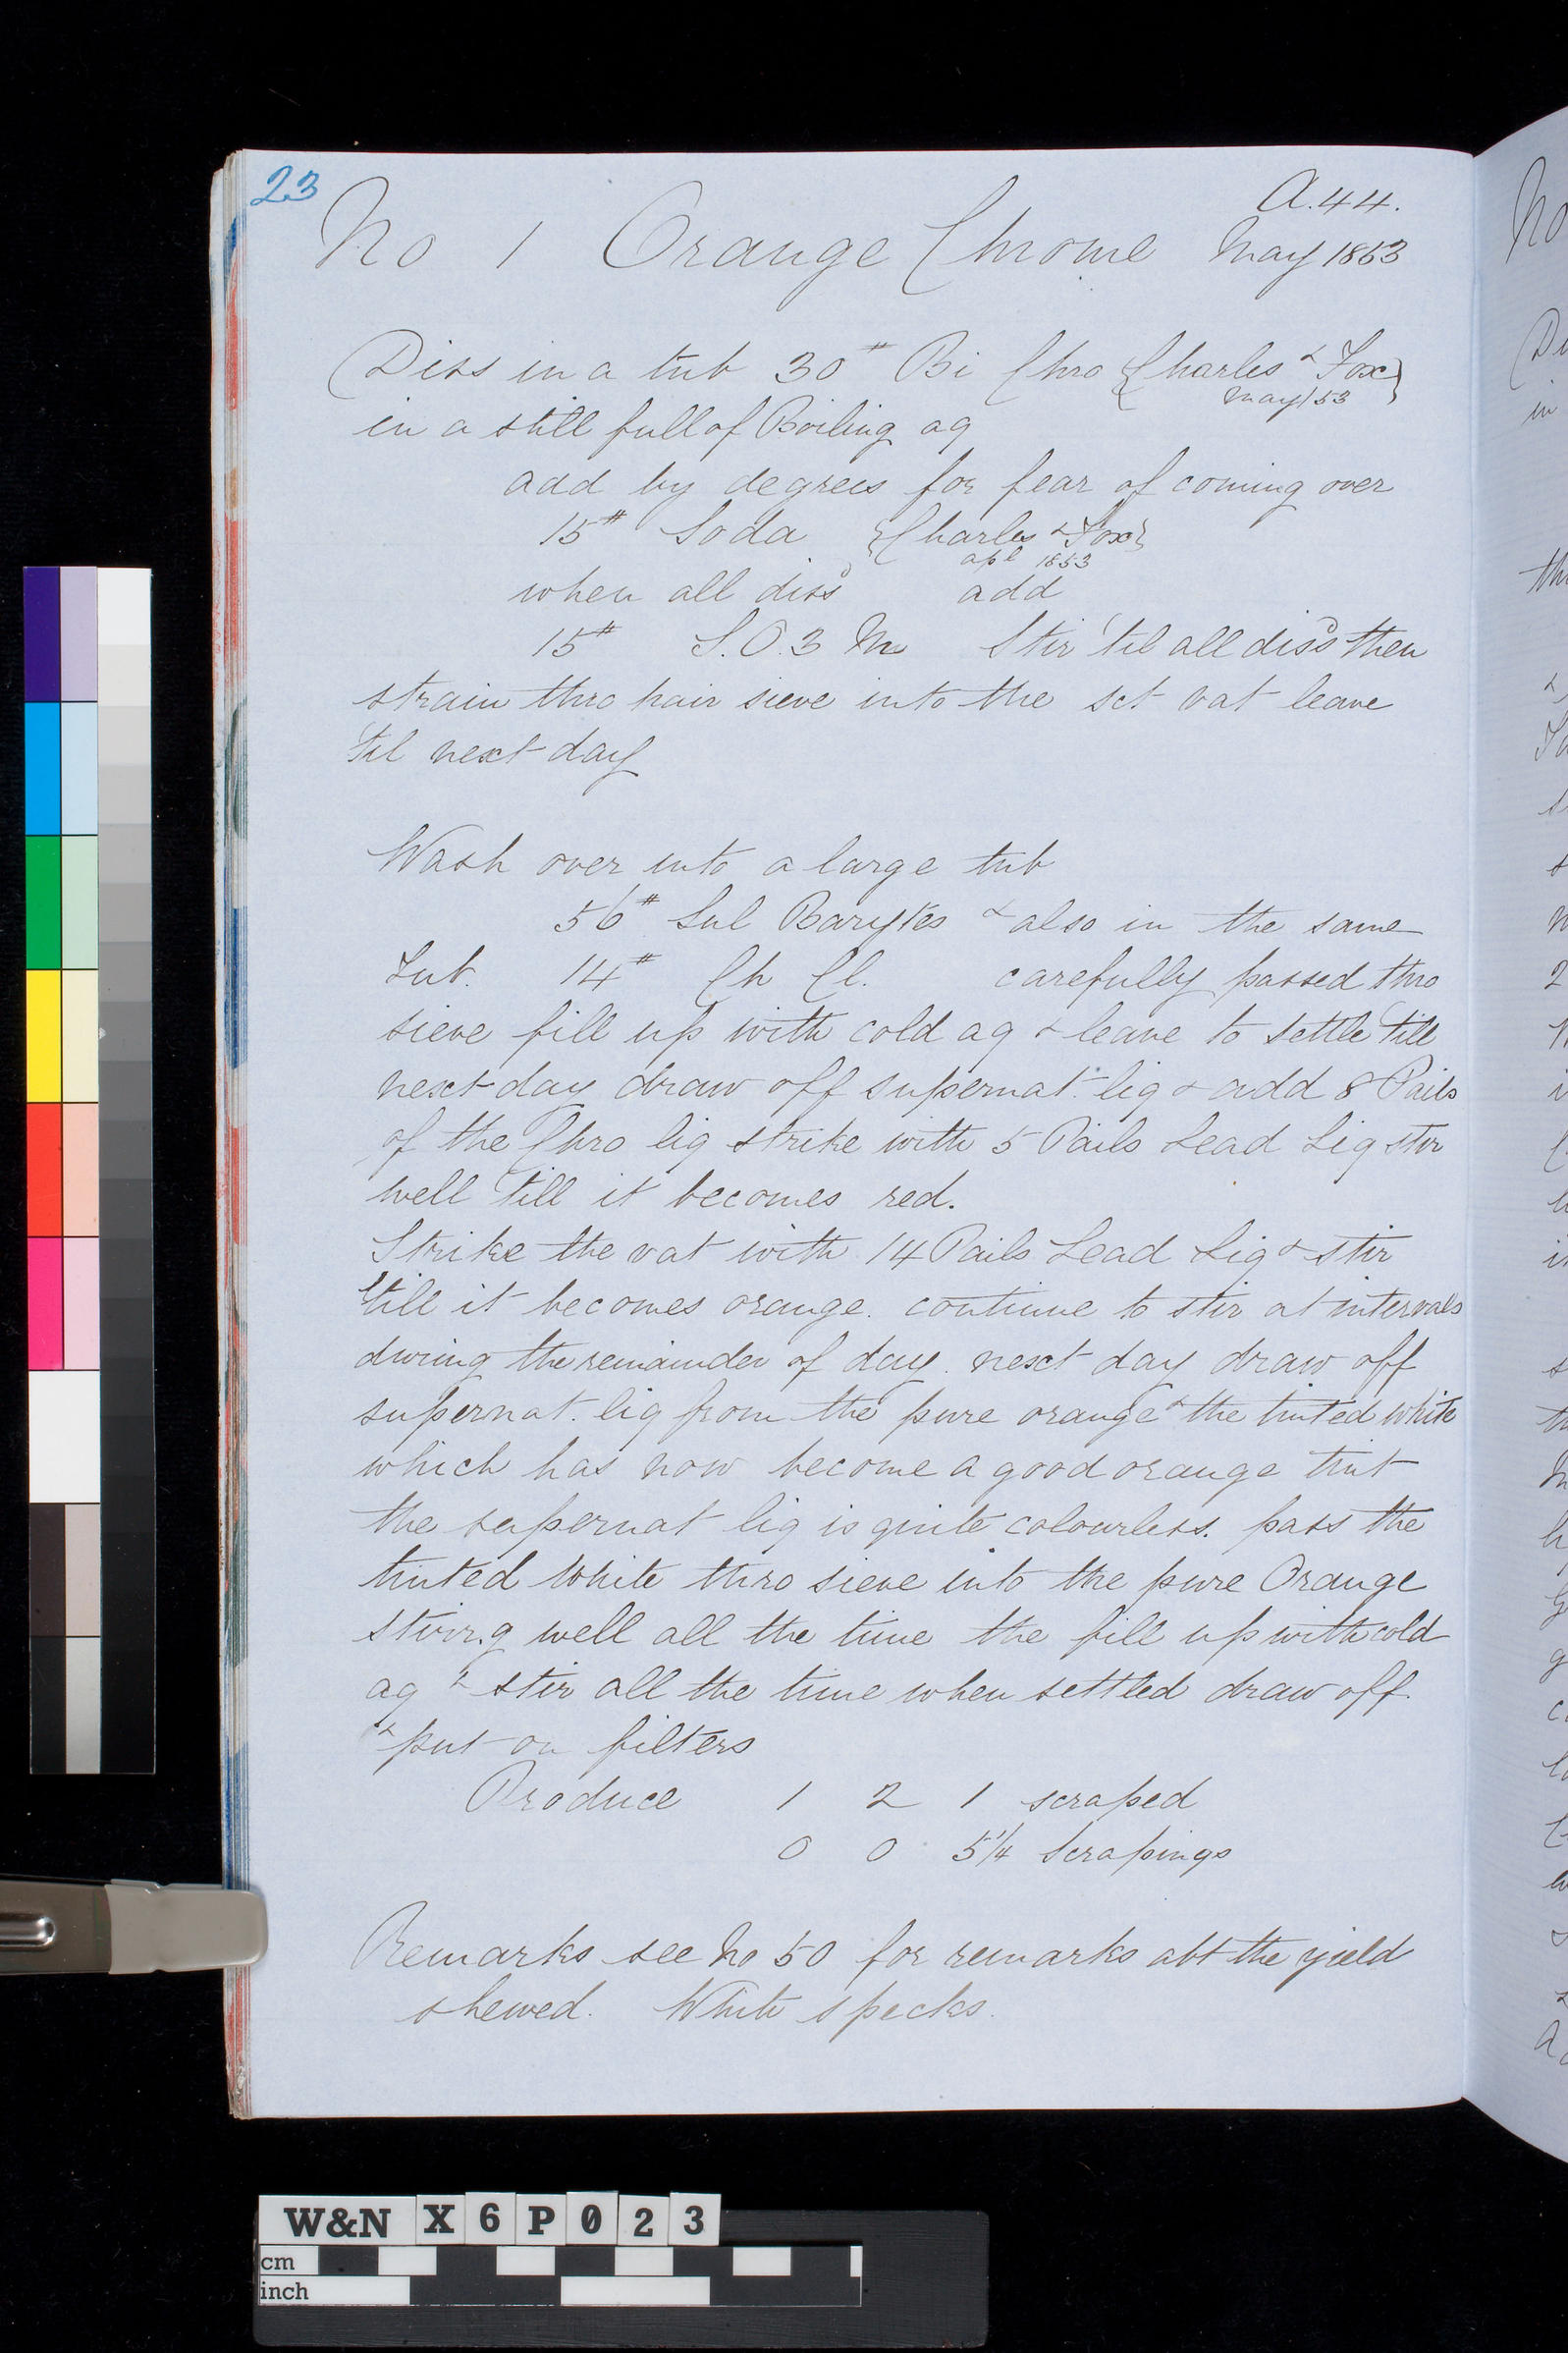 23
A.44.
No 1 Orange Chrome May 1853
Diss in a tub 30# Bi Chro {Charles & Fox}
May/53
in a still full of Boiling aq
add by degrees for fear of coming over
15# Soda {Charles & Fox}
apl 1853
when all dissd add
15# S.O.3 M Stir 'til all dissd then
strain thro hair sieve into the set vat leave
'til next day
Wash over into a large tub
56# Sul Barytes & also in the same
Tub. 14# Ch Cl. carefully passed thro
sieve fill up with cold aq & leave to settle 'till
next day draw off supernat. liq & add 8 Pails
of the Chro liq strike with 5 Pails Lead Liq stir
well 'till it becomes red.
Strike the vat with 14 Pails Lead Liq & stir
'till it becomes orange. continue to stir at intervals
during the remainder of day. next day draw off
supernat. liq from the pure orange & the tinted white
which has now become a good orange tint
the supernat liq is quite colourless. pass the
tinted White thro sieve into the pure Orange
stirr.g well all the time the fill up with cold
aq & stir all the time when settled draw off
& put on filters
Produce 1 2 1 scraped
0 0 5 1/4 Scrapings
Remarks see No 50 for remarks abt the yield
shewed. White specks.
W&N X6P023
cm
inch